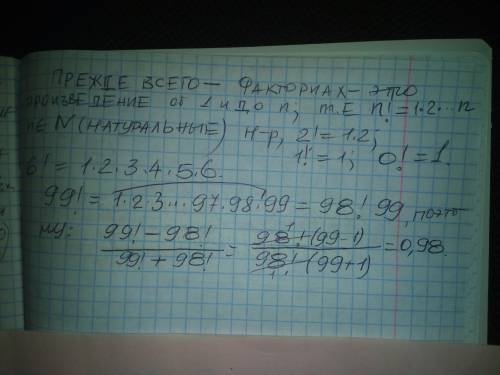 ПРЕЖДЕ ВСЕГО — ФАКТОРИАХ — ЭТО
ПРОИЗВЕДЕНИЕ ОТ 1 и ДО n; т.Е n! = 1·2·...n
n∈N (НАТУРАЛЬНЫЕ) Н-р, 2! = 1·2;
1! = 1; 0! = 1.
6! = 1·2·3·4·5·6.
99! = 1·2·3·...97·98·99 = 98!·99, поэто
му: (99! − 98!)/(99! + 98!) = (98!·(99−1))/(98!·(99+1)) = 0,98.